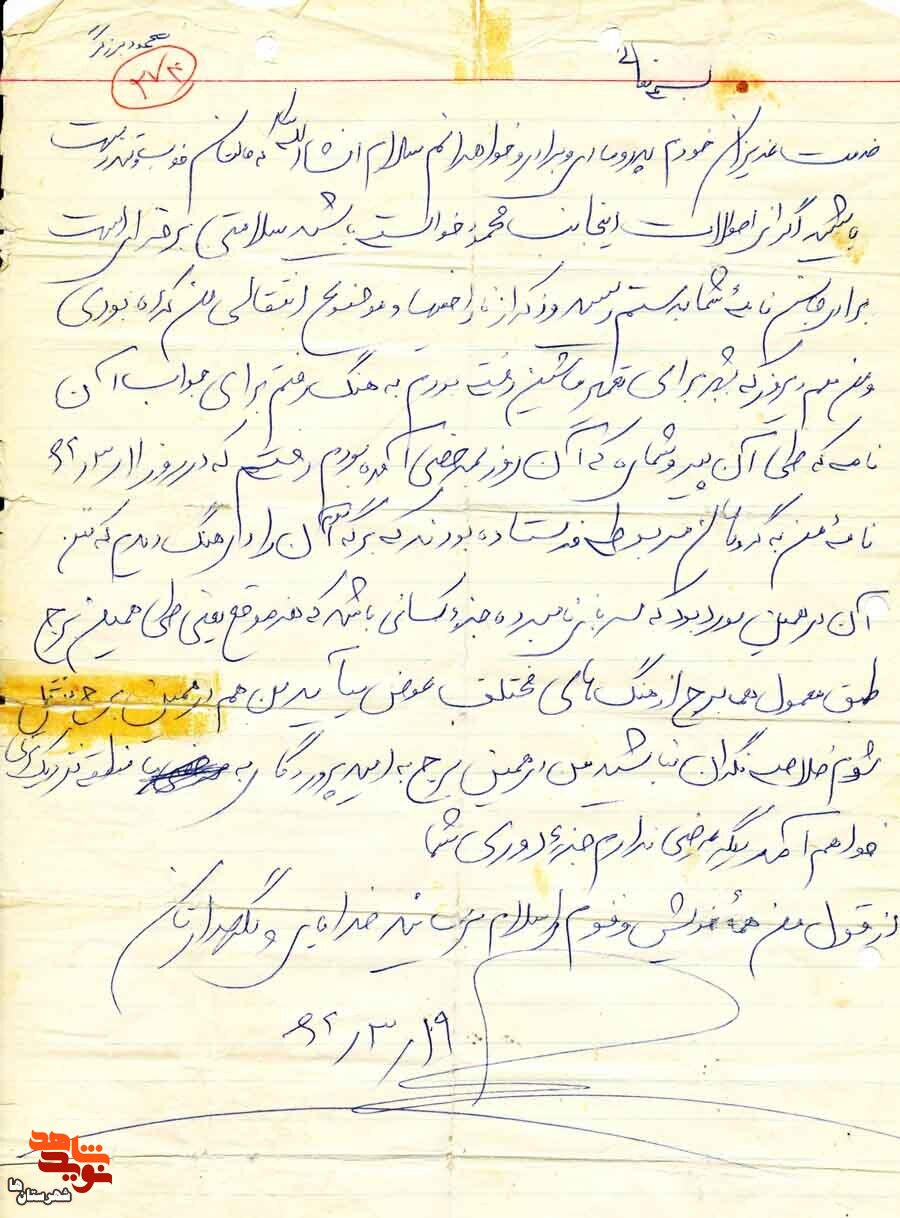 محمود برزگر
۲۷۴
بسمه تعالی
خدمت عزیزان خودم پدر و مادر و برادر و خواهرانم سلام انشاءالله که حالتان خوب و تندرست
باشید اگر از احوالات اینجانب محمود خواسته باشید سلامتی برقرار است
برادر جان نامهٔ شما بدستم رسید و ذکر از ناراحتیها و موضوع انتقالی من کرده بودی
و من هم دیروز که بشهر برای تعمیر ماشین رفته بودم به هنگ رفتم برای جواب آن
نامه که طی آن پیرو شماره که آن روز بمرخصی آمده بودم رفتم که در روز ۱۱ر۳ر۶۲
نامهٔ من به گروهان مربوطه فرستاده بودند که برگه آن را در هنگ دیدم که متن
آن در همین مورد بود که سرباز نامبرده جزء کسانی باشد که هر موقع یعنی طی همین برج
طبق معمول همه برج از هنگ های مختلف عوض میآید من هم در همین برج
شوم خلاصه نگران نباشید من در همین برج به امید پروردگار به منطقه نزدیک تری
خواهم آمد دیگر عرضی ندارم جزء دوری شما
از قول من همهٔ خویش و قوم را سلام برسانید خدایار و نگهدارتان
۱۹ر۳ر۶۲
نوید شاهد
شهرستان‌ها